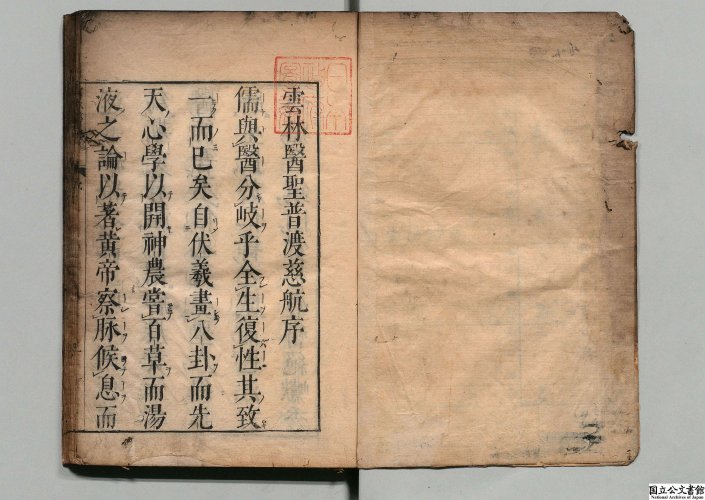 雲林醫聖普渡慈航序
儒與醫分岐乎全生復性其致
一而已矣自伏羲畫八卦而先
天心學以開神農嘗百草而湯
液之論以著黃帝察脉候息而
国立公文書館
National Archives of Japan